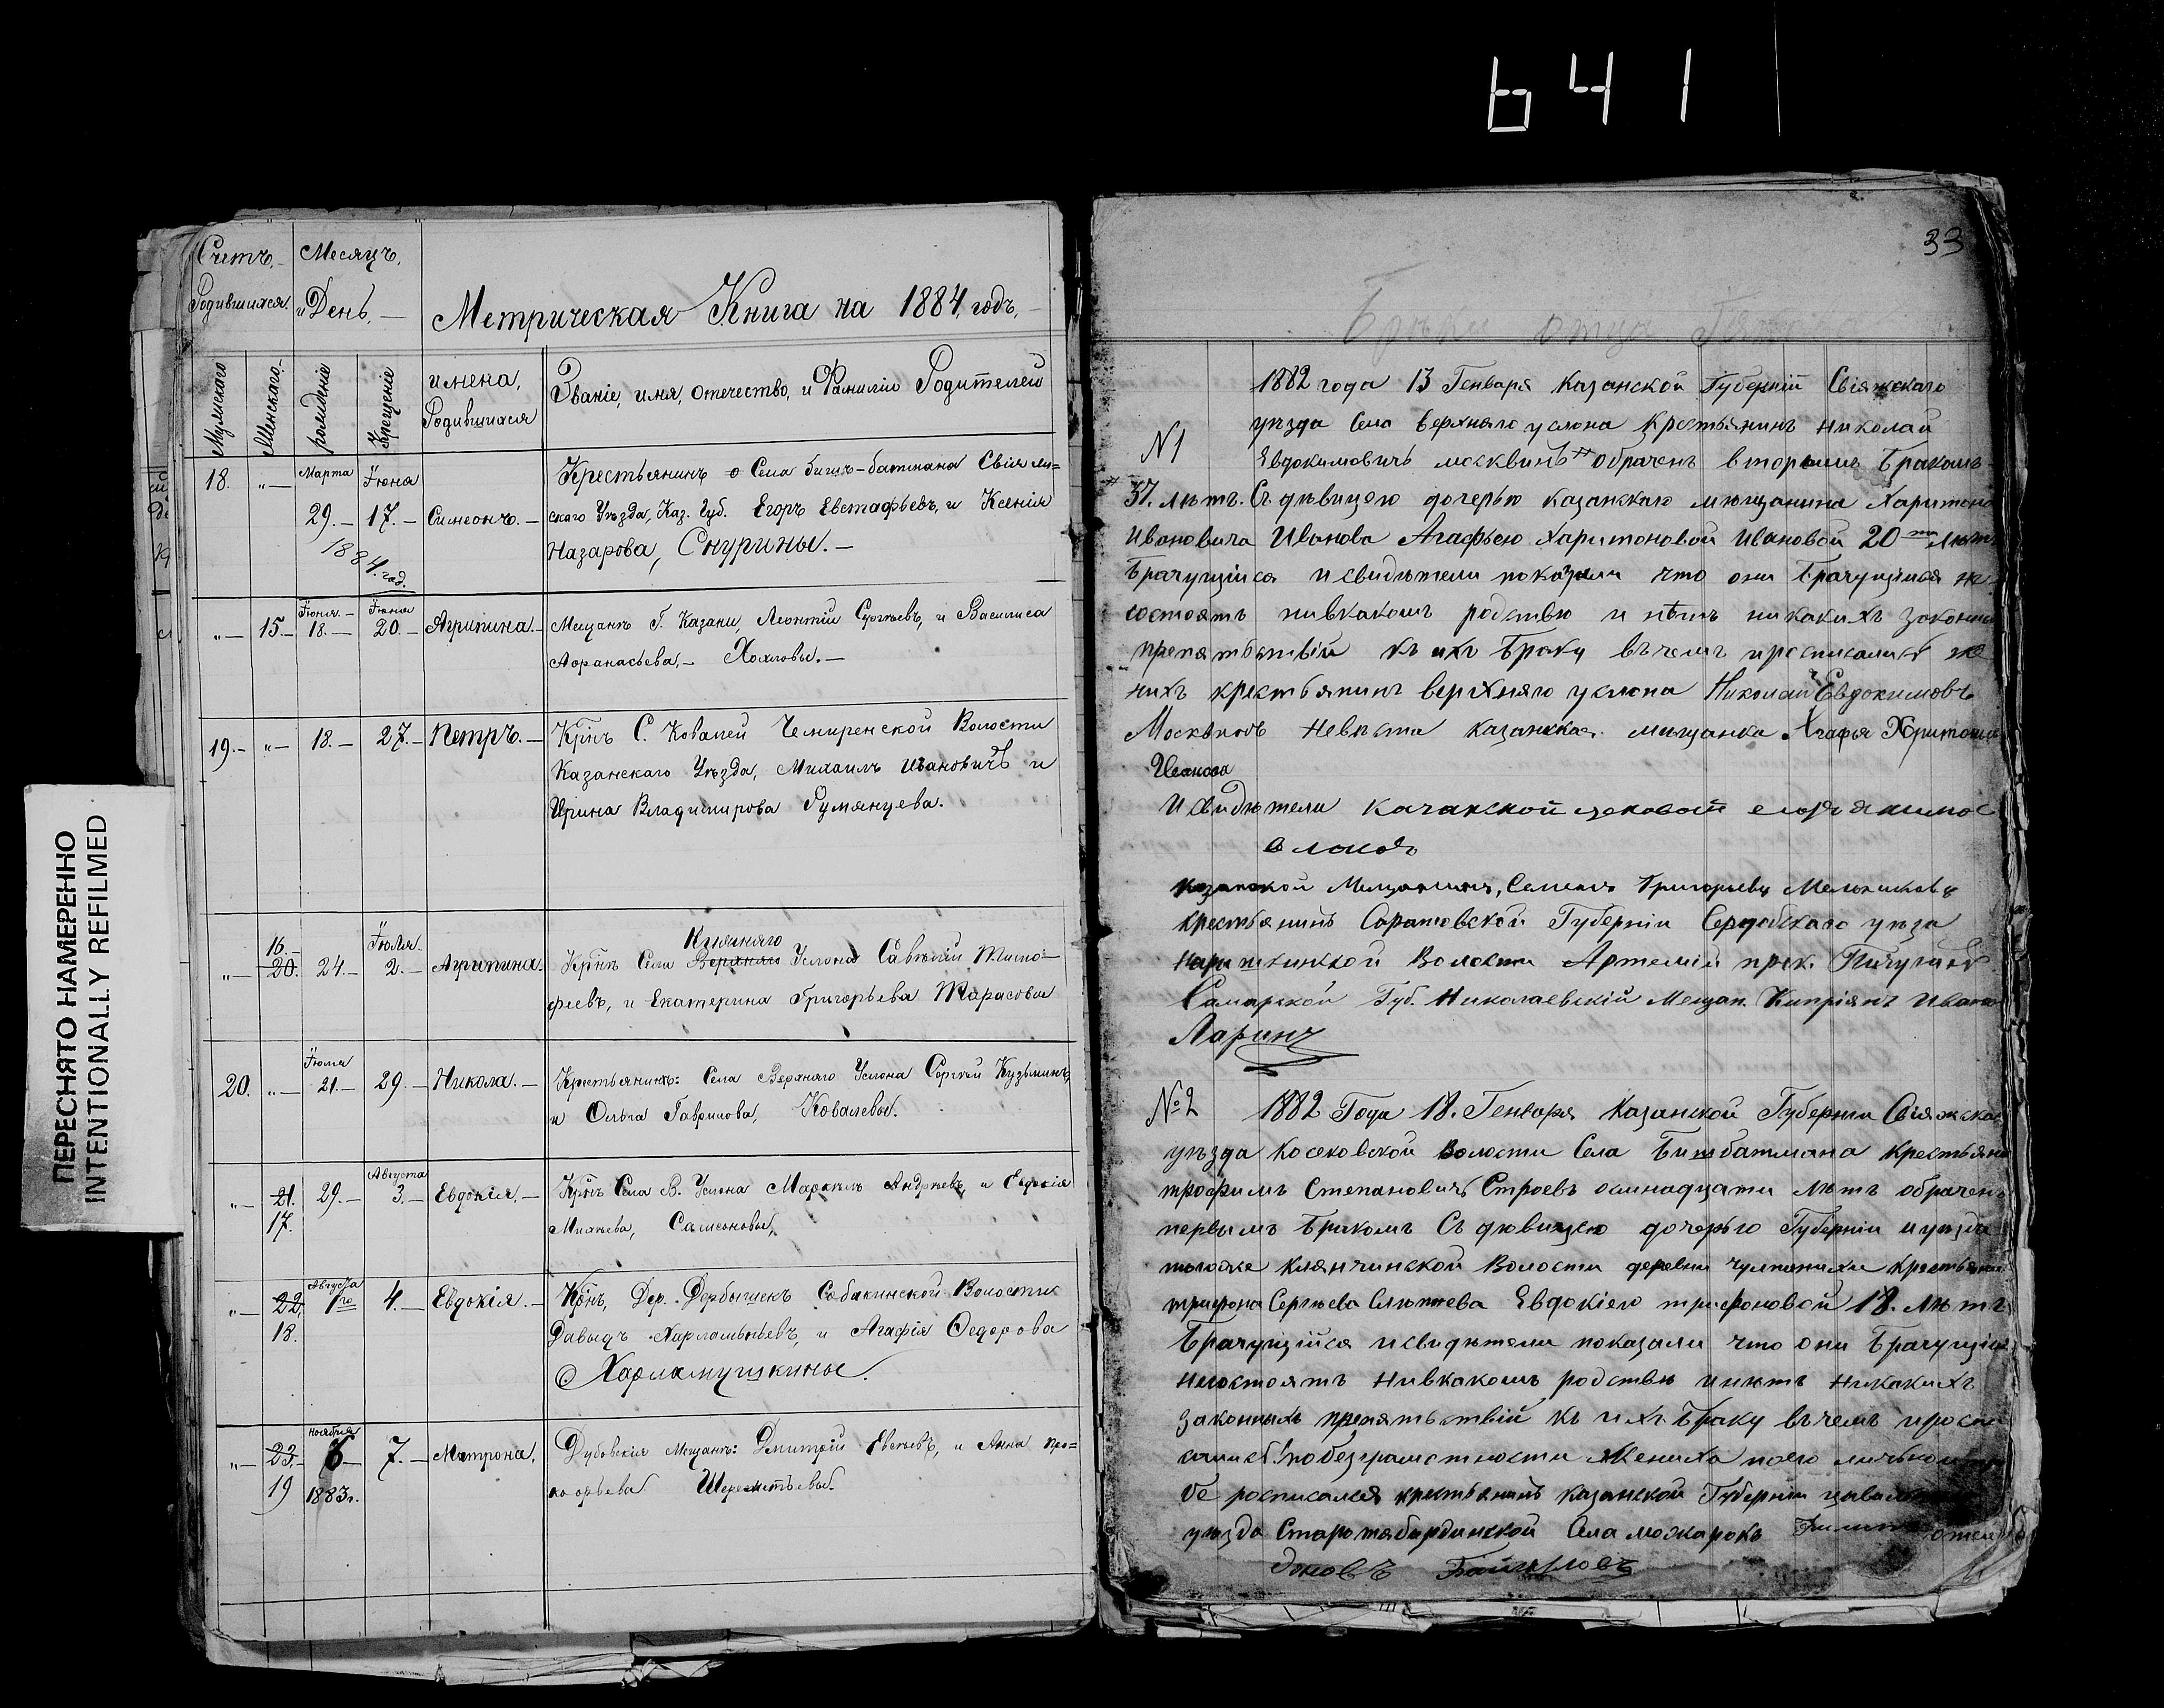 641
ПЕРЕСНЯТО НАМЕРЕННО
INTENTIONALLY REFILMED
Счетъ,
Родившихся.
Месяцъ,
и День,—
Метрическая Книга на 1884, годъ,
Мужскаго
Женскаго
рождение
Крещение
имена,
Родившихся
Званіе, имя, отечество, и Фамиліи Родителей
18. „— Марта 29.— Іюня 17.— Симеонъ.—
1884. год.
Крестьянинъ Села Бишъ-батмана Свіяж=
скаго Уѣзда, Каз. Губ. Егоръ Евстафьевъ, и Ксенія
Назарова, Снурины.—
„— 15.— Іюня.— 18.— Іюня 20.— Агрипина.—
Мещанъ Г. Казани, Леонтій Сергѣевъ, и Василиса
Афанасьева,— Хохловы.—
19.— „— 18.— 27.— Петръ.—
Крнъ С. Ковалей Чемиренской Волости
Казанскаго Уѣзда, Михаилъ Ивановичъ и
Ирина Владимирова Румянцева.
„— 16.— 20. 24.— Іюля 2.— Агрипина.
Княжняго
Крнъ Села Верхняго Услона Савелій Тимо=
феевъ, и Екатерина Григорьева Тарасовы
20. „— Іюля 21.— 29.— Никола.—
Крестьянинъ: Села Верхняго Услона Сергей Кузьминъ,
и Ольга Гаврилова, Ковалевы.
„— 21. 17. 29.— Августа 3.— Евдокія.—
Крнъ Села В. Услона Маркелъ Андреевъ, и Евдокія
Михеева, Самсоновы,
„— 22, 18. Августа 1го 4.— Евдокія.—
Крнъ, Дер. Дербышекъ Собакинской Волости
Давыдъ Харлампьевъ, и Агафія Федорова
Харламушкины.
„— 23,— 19 ноября 6— 1883г. 7.— Матрона,
Дубовскія Мещанъ: Дмитрій Евсеевъ, и Анна Про=
кофьева Шереметьевы.
33
Браки отца
№1
1882 года 13 Генваря Казанской Губерній Свіяжскаго
уезда Села верхняго услона Крестьянинъ Николай
Евдокимовичъ москвинъ # обрачен вторымъ Бракомъ
# 37. лѣтъ. Съ дѣвицею дочерью казанскаго мѣщанина Харитона
Ивановича Иванова Агафьею Харитоновой Ивановой 20ти лѣтъ
Брачущіися и свидѣтели показали что они Брачущіися не
состоятъ нивкакомъ родствѣ и нѣтъ никакихъ законны
препятствій къ ихъ Браку въ чемъ и росписались же
нихъ крестьянинъ верхняго услона Николай Евдокимовъ
Москвинъ Невѣста казанская. мещанка Агафья Харитонова
Иванова
И свидѣтели
казанской Мещанинъ, Семенъ Григорьевъ Мельниковъ
крестьянинъ Саратовской Губерніи Сердобскаго уеза
Волости Артемій прок. Пичугинъ
Самарской Губ. Николаевскій Мещан. Кипріянъ Ивано
Ларинъ
№2 1882 Года 18. Генваря Казанской Губерніи Свіяжскаго
уѣзда Косяковской Волости Села Бишбатмана Крестьянин
трофимъ Степановичъ Строевъ осмнадцати лѣтъ обраченъ
первымъ Бракомъ Съ дѣвицею дочерью Губерніи и уезда
тогоже Клянчинской Волости деревни крестьянина
трифона Сергѣева Евдокіею трифоновой 18. лѣтъ
Брачущійся и свидѣтели показали что они Брачущіися
несостоятъ Нивкакомъ родствѣ инѣтъ Никакихъ
законныхъ препятьствій къ ихъ Браку въ чемъ и роспи
сались! побезграмотности Жениха поего личьной
бе росписался крестьянинъ казанской Губерніи
уезда Села можарокъ